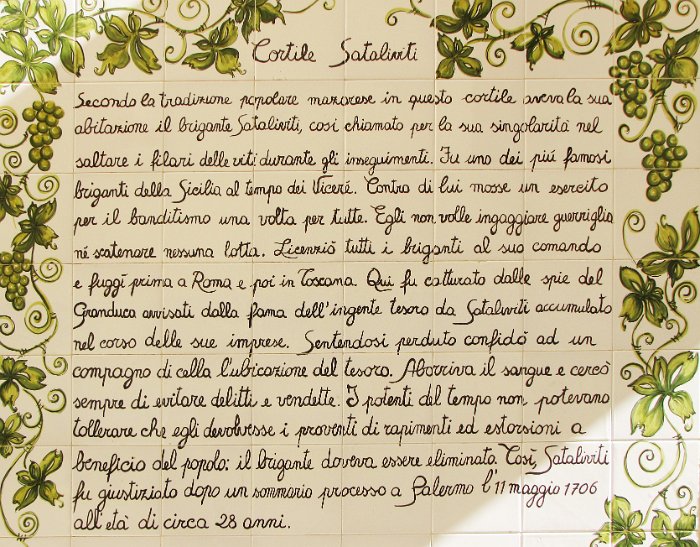 Cortile Sataliviti
Secondo la tradizione popolare mazarese in questo cortile aveva la sua
abitazione il brigante Sataliviti, così chiamato per la sua singolarità nel
saltare i filari delle viti durante gli inseguimenti. Fu uno dei più famosi
briganti della Sicilia al tempo dei Viceré. Contro di lui mosse un esercito
per il banditismo una volta per tutte. Egli non volle ingaggiare guerriglia
né scatenare nessuna lotta. Licenziò tutti i briganti al suo comando
e fuggì prima a Roma e poi in Toscana. Qui fu catturato dalle spie del
Granduca avvisati dalla fama dell'ingente tesoro da Sataliviti accumulato
nel corso delle sue imprese. Sentendosi perduto confidò ad un
compagno di cella l'ubicazione del tesoro. Aborriva il sangue e cercò
sempre di evitare delitti e vendette. I potenti del tempo non potevano
tollerare che egli devolvesse i proventi di rapimenti ed estorsioni a
beneficio del popolo: il brigante doveva essere eliminato Così Sataliviti
fu giustiziato dopo un sommario processo a Palermo l'11 maggio 1706
all'età di circa 28 anni.